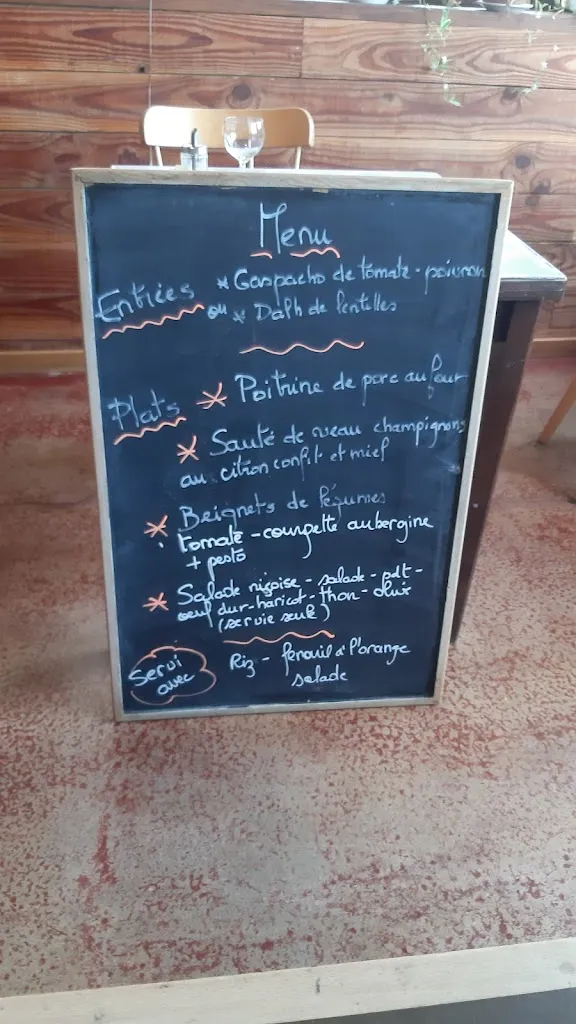 Menu
Entrées * Gaspacho de tomate - poivron
ou * Dalh de lentilles
Plats * Poitrine de porc au four
* Sauté de veau champignons
au citron confit et miel
* Beignets de légumes
tomate - courgette aubergine
+ pesto
* Salade niçoise - salade - pdt -
oeuf dur - haricot - thon - olive
(servie seule)
Servi avec Riz - fenouil à l'orange
salade